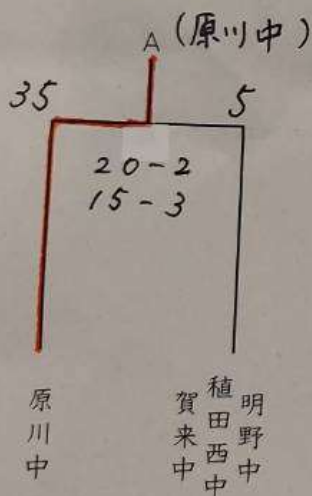 A (原川中)
35
5
20-2
15-3
原川中
明野中
稙田西中
賀来中